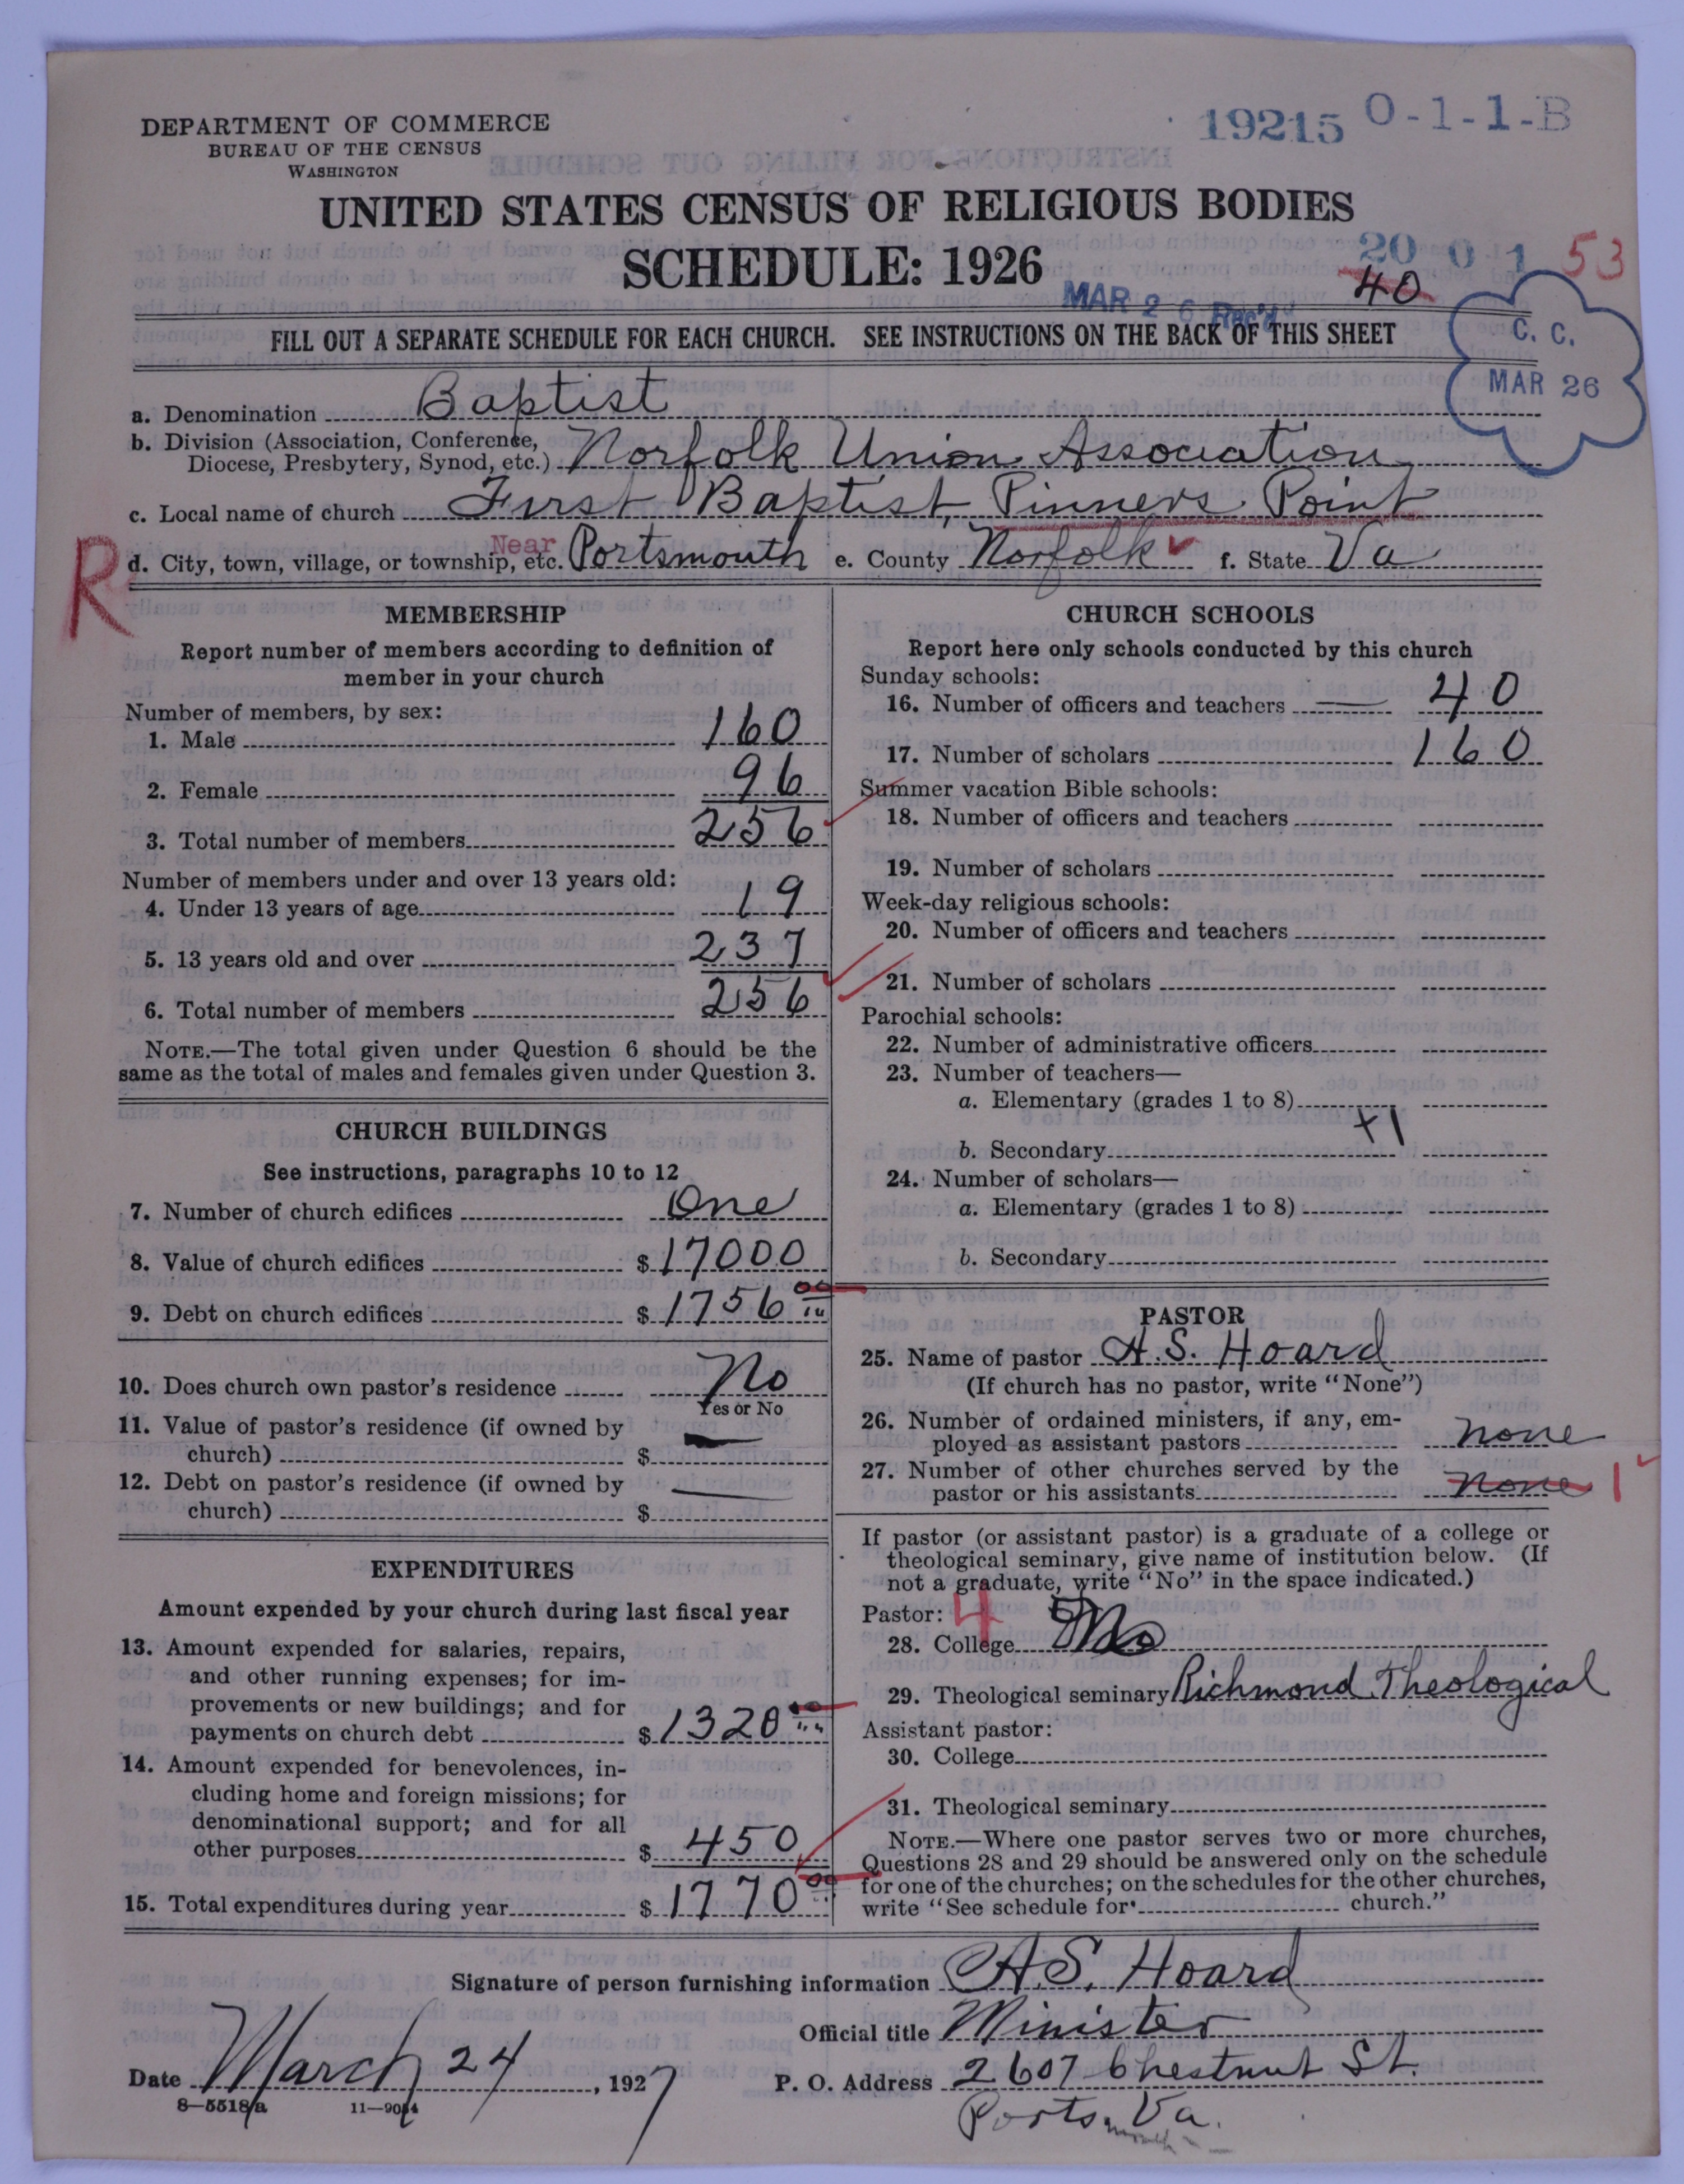 19215 0-1-1-B
DEPARTMENT OF COMMERCE
BUREAU OF THE CENSUS
WASHINGTON
UNITED STATES CENSUS OF RELIGIOUS BODIES
SCHEDULE: 1926
20 0 1 53
40
MAR 26 Rec'd
FILL OUT A SEPARATE SCHEDULE FOR EACH CHURCH. SEE INSTRUCTIONS ON THE BACK OF THIS SHEET
C. C.
MAR 26
a. Denomination Baptist
b. Division (Association, Conference,
Diocese, Presbytery, Synod, etc.) Norfolk Union Association
c. Local name of church First Baptist, Pinners Point
R
d. City, town, village, or township, etc. Near Portsmouth e. County Norfolk f. State Va
MEMBERSHIP
Report number of members according to definition of
member in your church
Number of members, by sex:
1. Male 160
2. Female 96
3. Total number of members 256
Number of members under and over 13 years old:
4. Under 13 years of age 19
5. 13 years old and over 237
6. Total number of members 256
NOTE.—The total given under Question 6 should be the
same as the total of males and females given under Question 3.
CHURCH BUILDINGS
See instructions, paragraphs 10 to 12
7. Number of church edifices One
8. Value of church edifices $ 17000
9. Debt on church edifices $ 1756 00
10. Does church own pastor's residence No
Yes or No
11. Value of pastor's residence (if owned by
church) $
12. Debt on pastor's residence (if owned by
church) $
EXPENDITURES
Amount expended by your church during last fiscal year
13. Amount expended for salaries, repairs,
and other running expenses; for im-
provements or new buildings; and for
payments on church debt $ 1320 00
14. Amount expended for benevolences, in-
cluding home and foreign missions; for
denominational support; and for all
other purposes $ 450
15. Total expenditures during year $ 1770 00
CHURCH SCHOOLS
Report here only schools conducted by this church
Sunday schools:
16. Number of officers and teachers 40
17. Number of scholars 160
Summer vacation Bible schools:
18. Number of officers and teachers
19. Number of scholars
Week-day religious schools:
20. Number of officers and teachers
21. Number of scholars
Parochial schools:
22. Number of administrative officers
23. Number of teachers—
a. Elementary (grades 1 to 8)
+1
b. Secondary
24. Number of scholars—
a. Elementary (grades 1 to 8)
b. Secondary
PASTOR
25. Name of pastor A. S. Hoard
(If church has no pastor, write "None")
26. Number of ordained ministers, if any, em-
ployed as assistant pastors none
27. Number of other churches served by the
pastor or his assistants none 1
If pastor (or assistant pastor) is a graduate of a college or
theological seminary, give name of institution below. (If
not a graduate, write "No" in the space indicated.)
Pastor: 4
28. College No
29. Theological seminary Richmond Theological
Assistant pastor:
30. College
31. Theological seminary
NOTE.—Where one pastor serves two or more churches,
Questions 28 and 29 should be answered only on the schedule
for one of the churches; on the schedules for the other churches,
write "See schedule for church."
Signature of person furnishing information A. S. Hoard
Official title Minister
Date March 24, 1927 P. O. Address 2607 Chestnut St.
8—5518a 11—9084
Ports. Va.